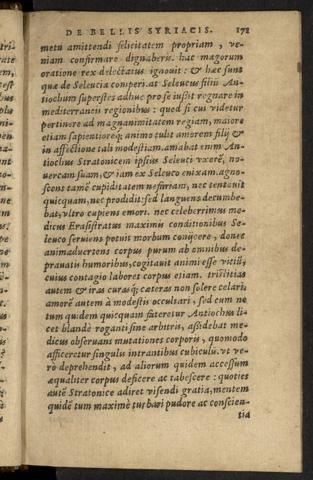 DE BELLIS SYRIACIS. 172
metu amittendi felicitatem propriam, ve-
niam confirmare dignaberis. hac magorum
oratione rex delectatus ignouit: & hæc sunt
quæ de Seleucia comperi. at Seleucus filiũ An-
tiochum superstes adhuc pro se iußit regnare in
mediterraneis regionibus: quod si cui videtur
pertinere ad magnanimitatem regiam, maiore
etiam sapientioreq; animo tulit amorem filij &
in affectione tali modestiam. amabat enim An-
tiochus Stratonicem ipsius Seleuci vxorẽ, no-
uercam suam, & iam ex Seleuco enixam. agno-
scens tamẽ cupiditatem nefariam, nec tentauit
quicquam, nec prodidit: sed languens decumbe-
bat, vltro cupiens emori. nec celeberrimus me-
dicus Erasistratus maximis conditionibus Se-
leuco seruiens potuit morbum conijcere, donec
animaduertens corpus purum ab omnibus de-
prauatis humoribus, cogitauit animi esse vitiũ,
cuius contagio laboret corpus etiam. tristitias
autem & iras curasq; cæteras non solere celari,
amorẽ autem à modestis occultari, sed cum ne
tum quidem quicquam fateretur Antiochus li-
cet blandè roganti sine arbitris, aßidebat me-
dicus obseruans mutationes corporis, quomodo
afficeretur singulis intrantibus cubiculũ. vt ve-
rò deprehendit, ad aliorum quidem accessum
æqualiter corpus deficere ac tabescere: quoties
autẽ Stratonice adiret visendi gratia, mentem
quidẽ tum maximè turbari pudore ac conscien-
tia